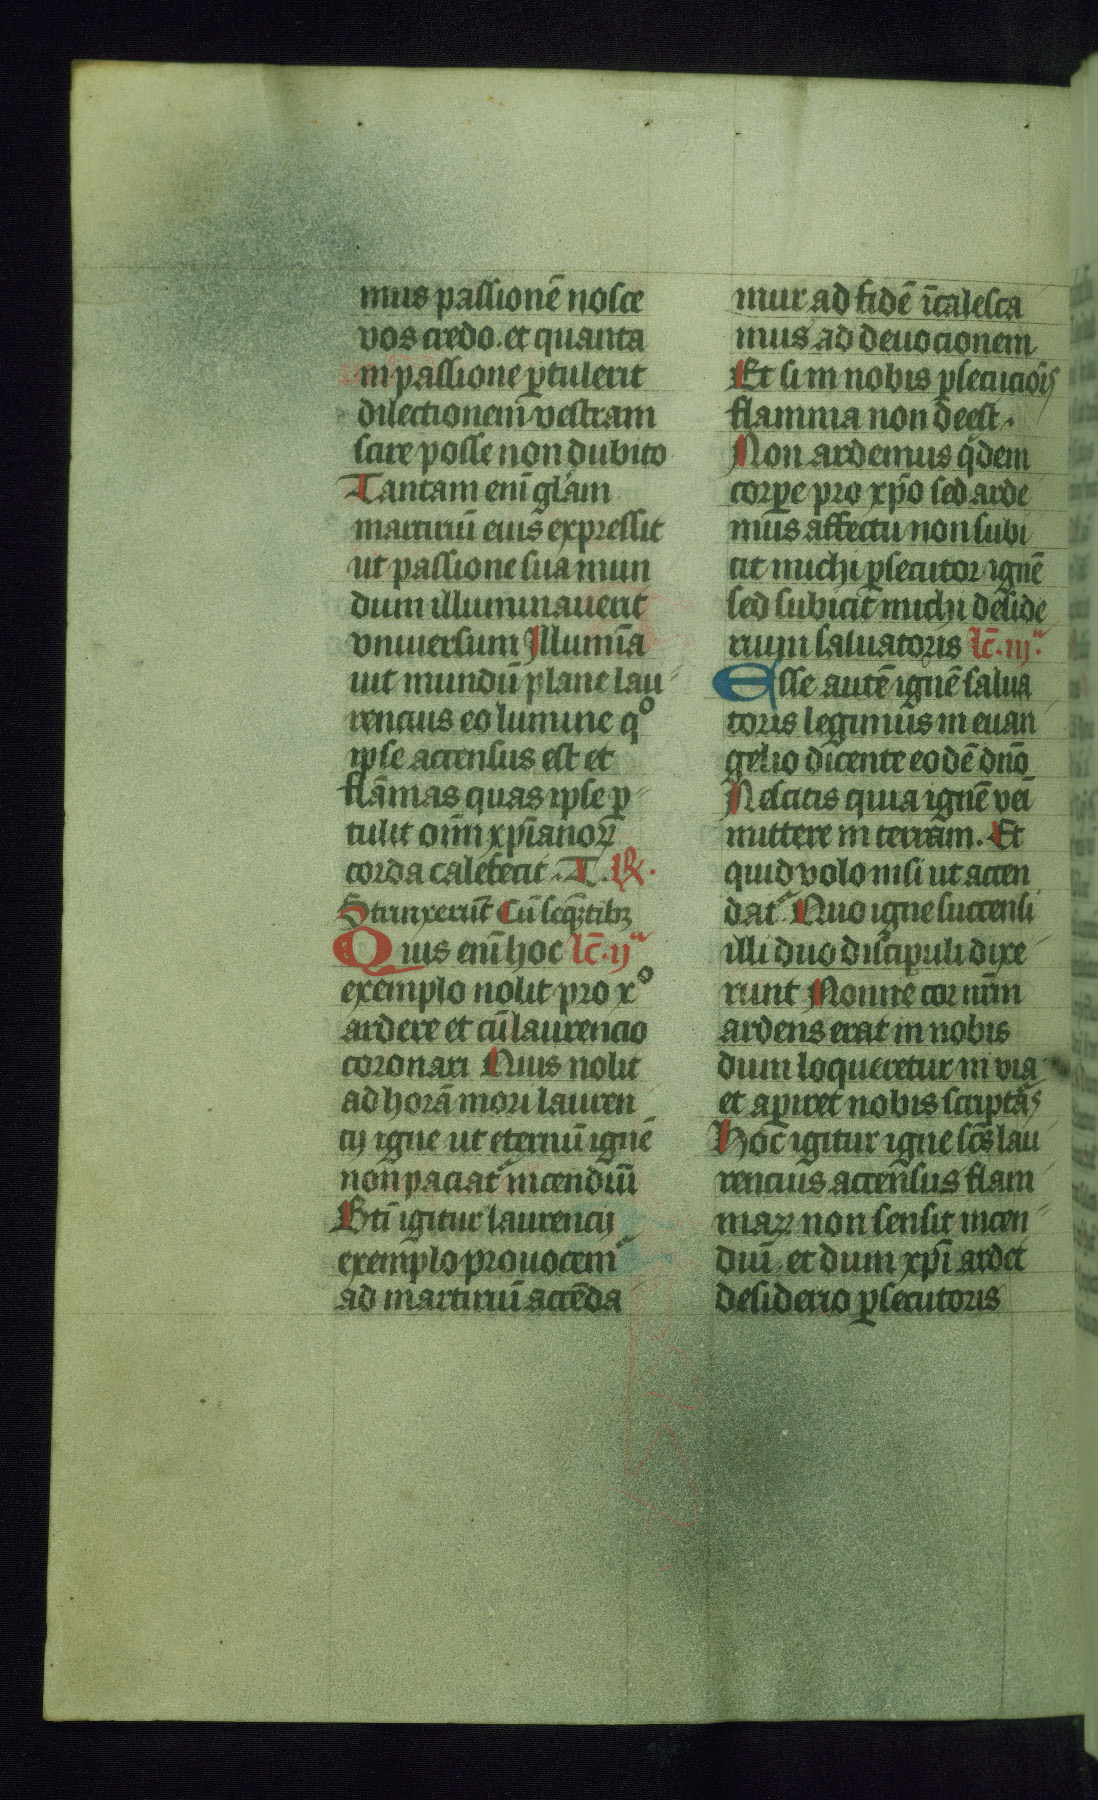 mus passionē nosce
vos credo. et quanta
in passione ꝑtulerit
dilectionem vestram
scire posse non dubito
Tantam eni gl'am
martiriū eius expressit
ut passione sua mun
dum illuminauerit
vniuersum Illumīa
uit mundū plane lau
rencius eo lumine qͦ
ipse accensus est et
flāmas quas ipse ꝑ
tulit oīm xp̄ianoꝝ
corda calefecit. T. ℟.
Strinxerūt Cū seq̄ntibꝫ
Quis enī hoc lc̄. ijᵃ
exemplo nolit pro xͦ
ardere et cū laurencio
coronari Quis nolit
ad horā mori lauren
cij igne ut eternū ignē
non paciat᷑ incendiū
Bt̄i igitur laurencij
exemplo prouocem᷑
ad martiriū accēda
mur ad fidē īcalesca
mus ad deuocionem
Et si in nobis ꝑsecucōis
flamma non deest.
Non ardemus q̇dem
corꝑe pro xp̄o sed arde
mus affectu non subi
cit michi ꝑsecutor ignē
sed subicit michi deside
rium saluatoris lc̄. iijᵃ.
Esse autē ignē salua
toris legimus in euan
gelio dicente eodē dn̄o
Nescitis quia ignē vēi
mittere in terram. Et
quid volo nisi ut accen
dat᷑ Quo igne succensi
illi duo discipuli dixe
runt Nonne cor nr̄m
ardens erat in nobis
dum loqueretur in via
et aperiret nobis scriptās
Hoc igitur igne sc̄s lau
rencius accensus flam
maꝝ non sensit incen
diū. et dum xp̄i ardet
desiderio ꝑsecutoris